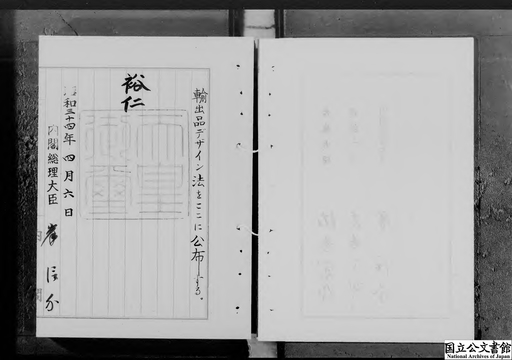 輸出品デザイン法をここに公布する。
裕仁
天皇御璽
昭和三十四年四月六日
内閣総理大臣 岸信介
国立公文書館
National Archives of Japan